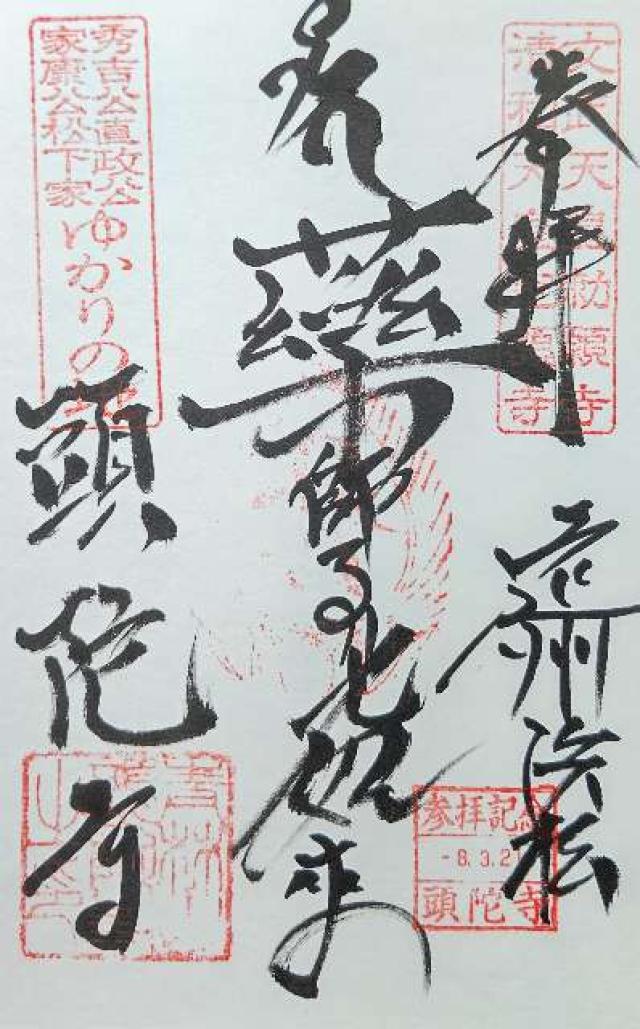 奉拝
遠州浜松
文武天皇勅願寺
清和天皇勅願寺
参拝記念
-8.3.2
頭陀寺
薬師る理光如来
秀吉公直政公
家康公松下家
ゆかりの
頭陀寺